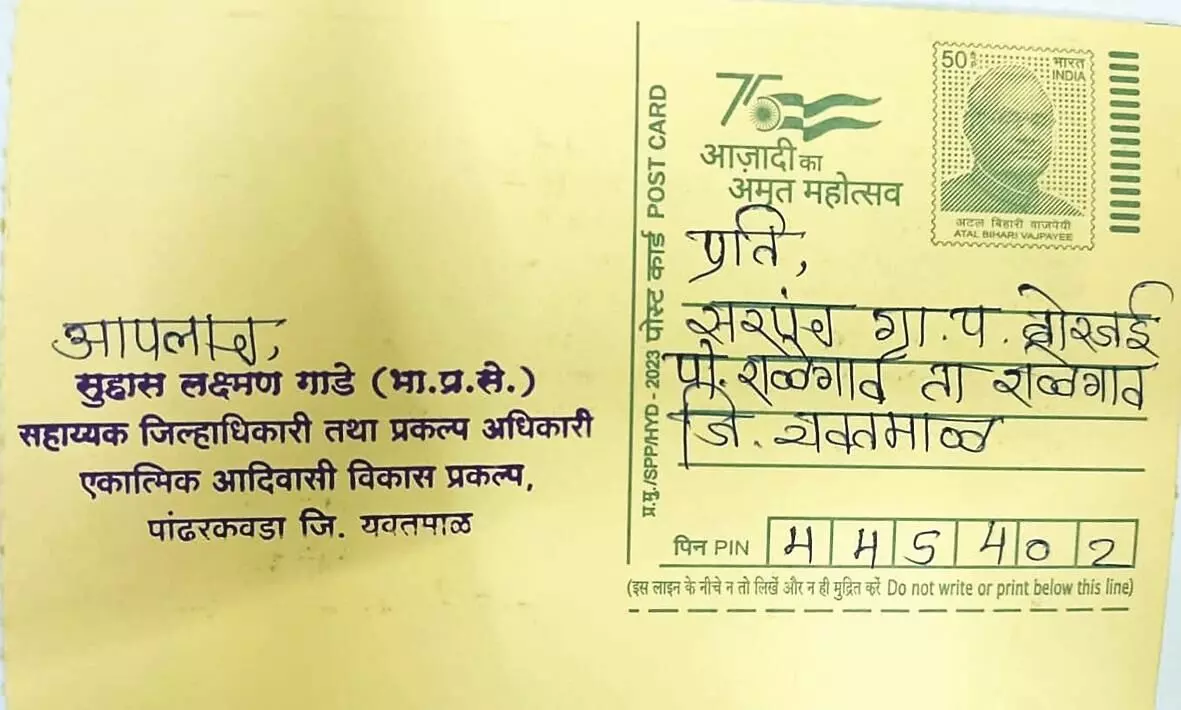 आपलाच,
सुहास लक्ष्मण गाडे (भा.प्र.से.)
सहाय्यक जिल्हाधिकारी तथा प्रकल्प अधिकारी
एकात्मिक आदिवासी विकास प्रकल्प,
पांढरकवडा जि. यवतमाळ
प्र.मु./SPP/HYD - 2023 पोस्ट कार्ड POST CARD
75
आज़ादी का
अमृत महोत्सव
50
भारत
INDIA
अटल बिहारी वाजपेयी
ATAL BIHARI VAJPAYEE
प्रति,
सरपंच ग्रा.प.
पो. राळेगाव ता राळेगाव
जि. यवतमाळ
पिन PIN 445402
(इस लाइन के नीचे न तो लिखें और न ही मुद्रित करें Do not write or print below this line)